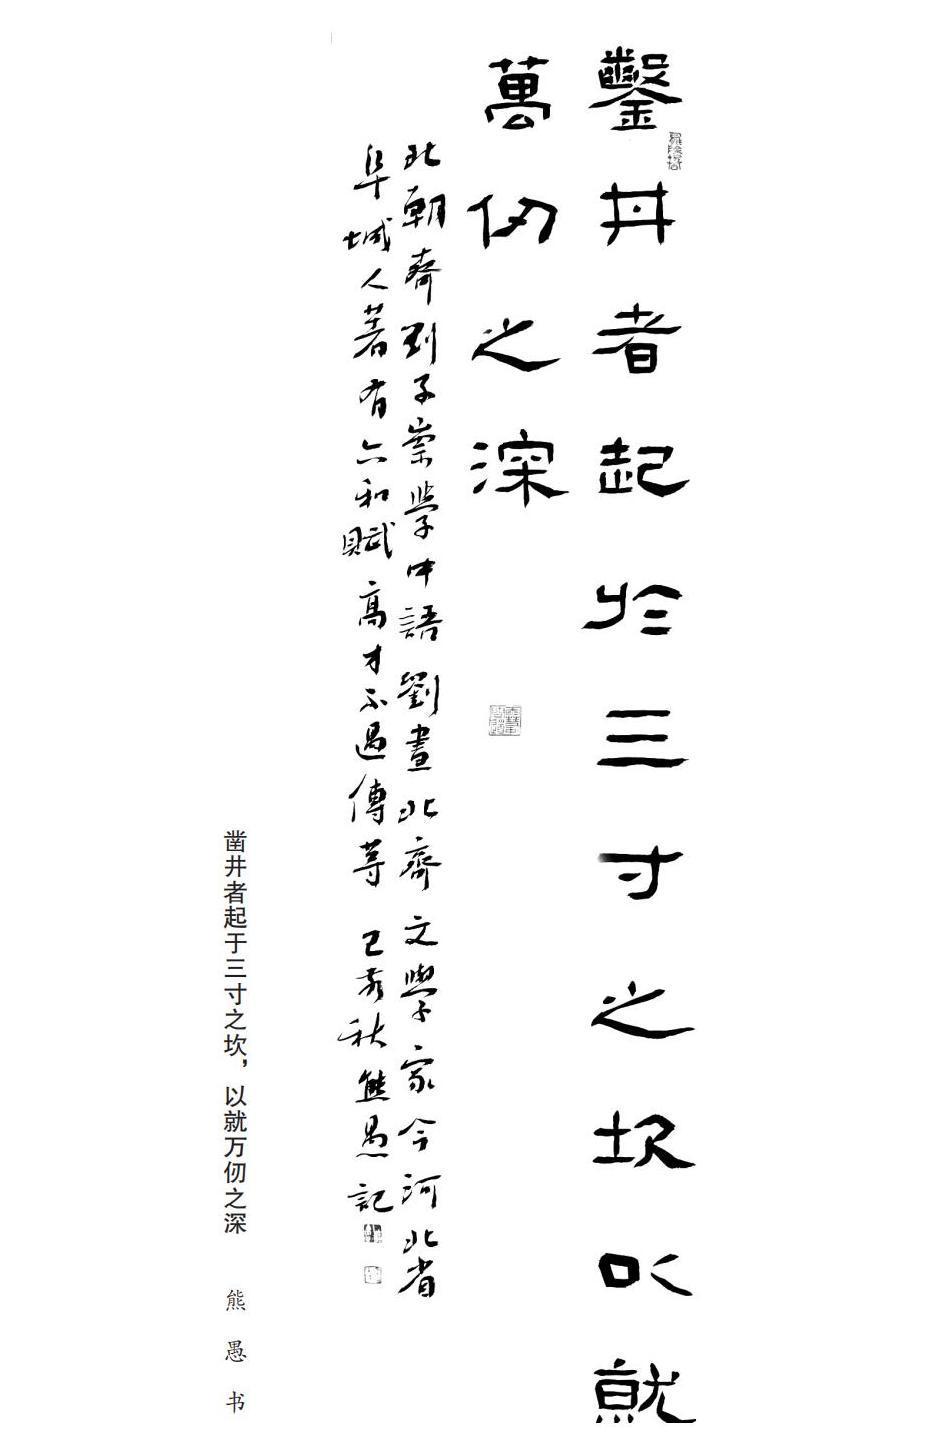 鑿井者起於三寸之坎以就
萬仞之深
北朝齊劉子崇學中語劉晝北齊文學家今河北省
阜城人著有六和賦高才不遇傳等 己亥秋熊愚記
凿井者起于三寸之坎，以就万仞之深 熊愚书